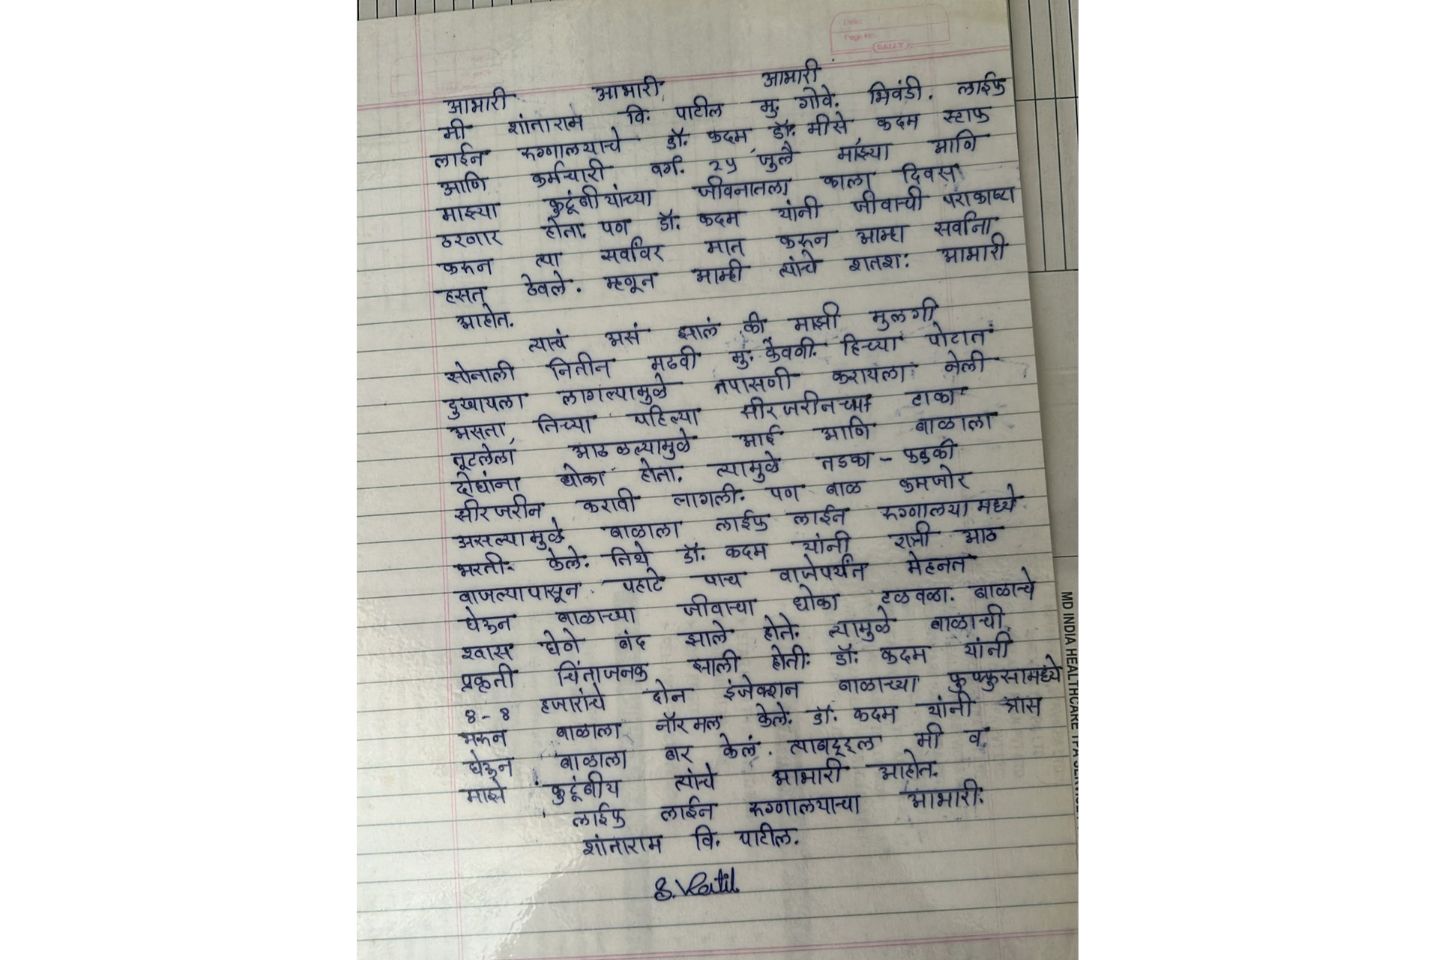 आभारी आभारी आभारी
मी शांताराम वि. पाटील मु. गोवे. भिवंडी. लाईफ
लाईन रुग्णालयाचे डॉ. कदम डॉ. मीसे कदम स्टाफ
आणि कर्मचारी वर्ग. २५ जुलै माझ्या आणि
माझ्या कुटूंबीयांच्या जीवनातला काला दिवस
ठरणार होता. पण डॉ. कदम यांनी जीवाची पराकाष्टा
करून त्या सर्वांवर मात करून आम्हा सर्वांना
हसत ठेवले. म्हणून आम्ही त्यांचे शतशः आभारी
आहोत.
त्याचं असं झालं की माझी मुलगी
सोनाली नितीन मढवी मु. केवणी. हिच्या पोटात
दुखायला लागल्यामुळे तपासणी करायला नेली
असता, तिच्या पहिल्या सीरजरीनच्या टाका
तूटलेला आढळल्यामुळे आई आणि बाळाला
दोघांना धोका होता. त्यामुळे तडका - फडकी
सीरजरीन करावी लागली. पण बाळ कमजोर
असल्यामुळे बाळाला लाईफ लाईन रुग्णालयामध्ये
भरती केले. तिथे डॉ. कदम यांनी रात्री आठ
वाजल्यापासून पहाटे पाच वाजेपर्यंत मेहनत
घेऊन बाळाच्या जीवाचा धोका टळवळा. बाळाचे
श्वास घेणे बंद झाले होते. त्यामुळे बाळाची
प्रकृती चिंताजनक झाली होती. डॉ. कदम यांनी
८-८ हजारांचे दोन इंजेक्शन बाळाच्या फुफ्फुसामध्ये
भरून बाळाला नॉरमल केले. डॉ. कदम यांनी त्रास
घेऊन बाळाला बार केलं. त्याबद्दल मी व
माझे कुटूंबीय त्यांचे आभारी आहोत.
लाईफ लाईन रुग्णालयाचा आभारी.
शांताराम वि. पाटील.
S.V.Patil
MD INDIA HEALTHCARE TPA